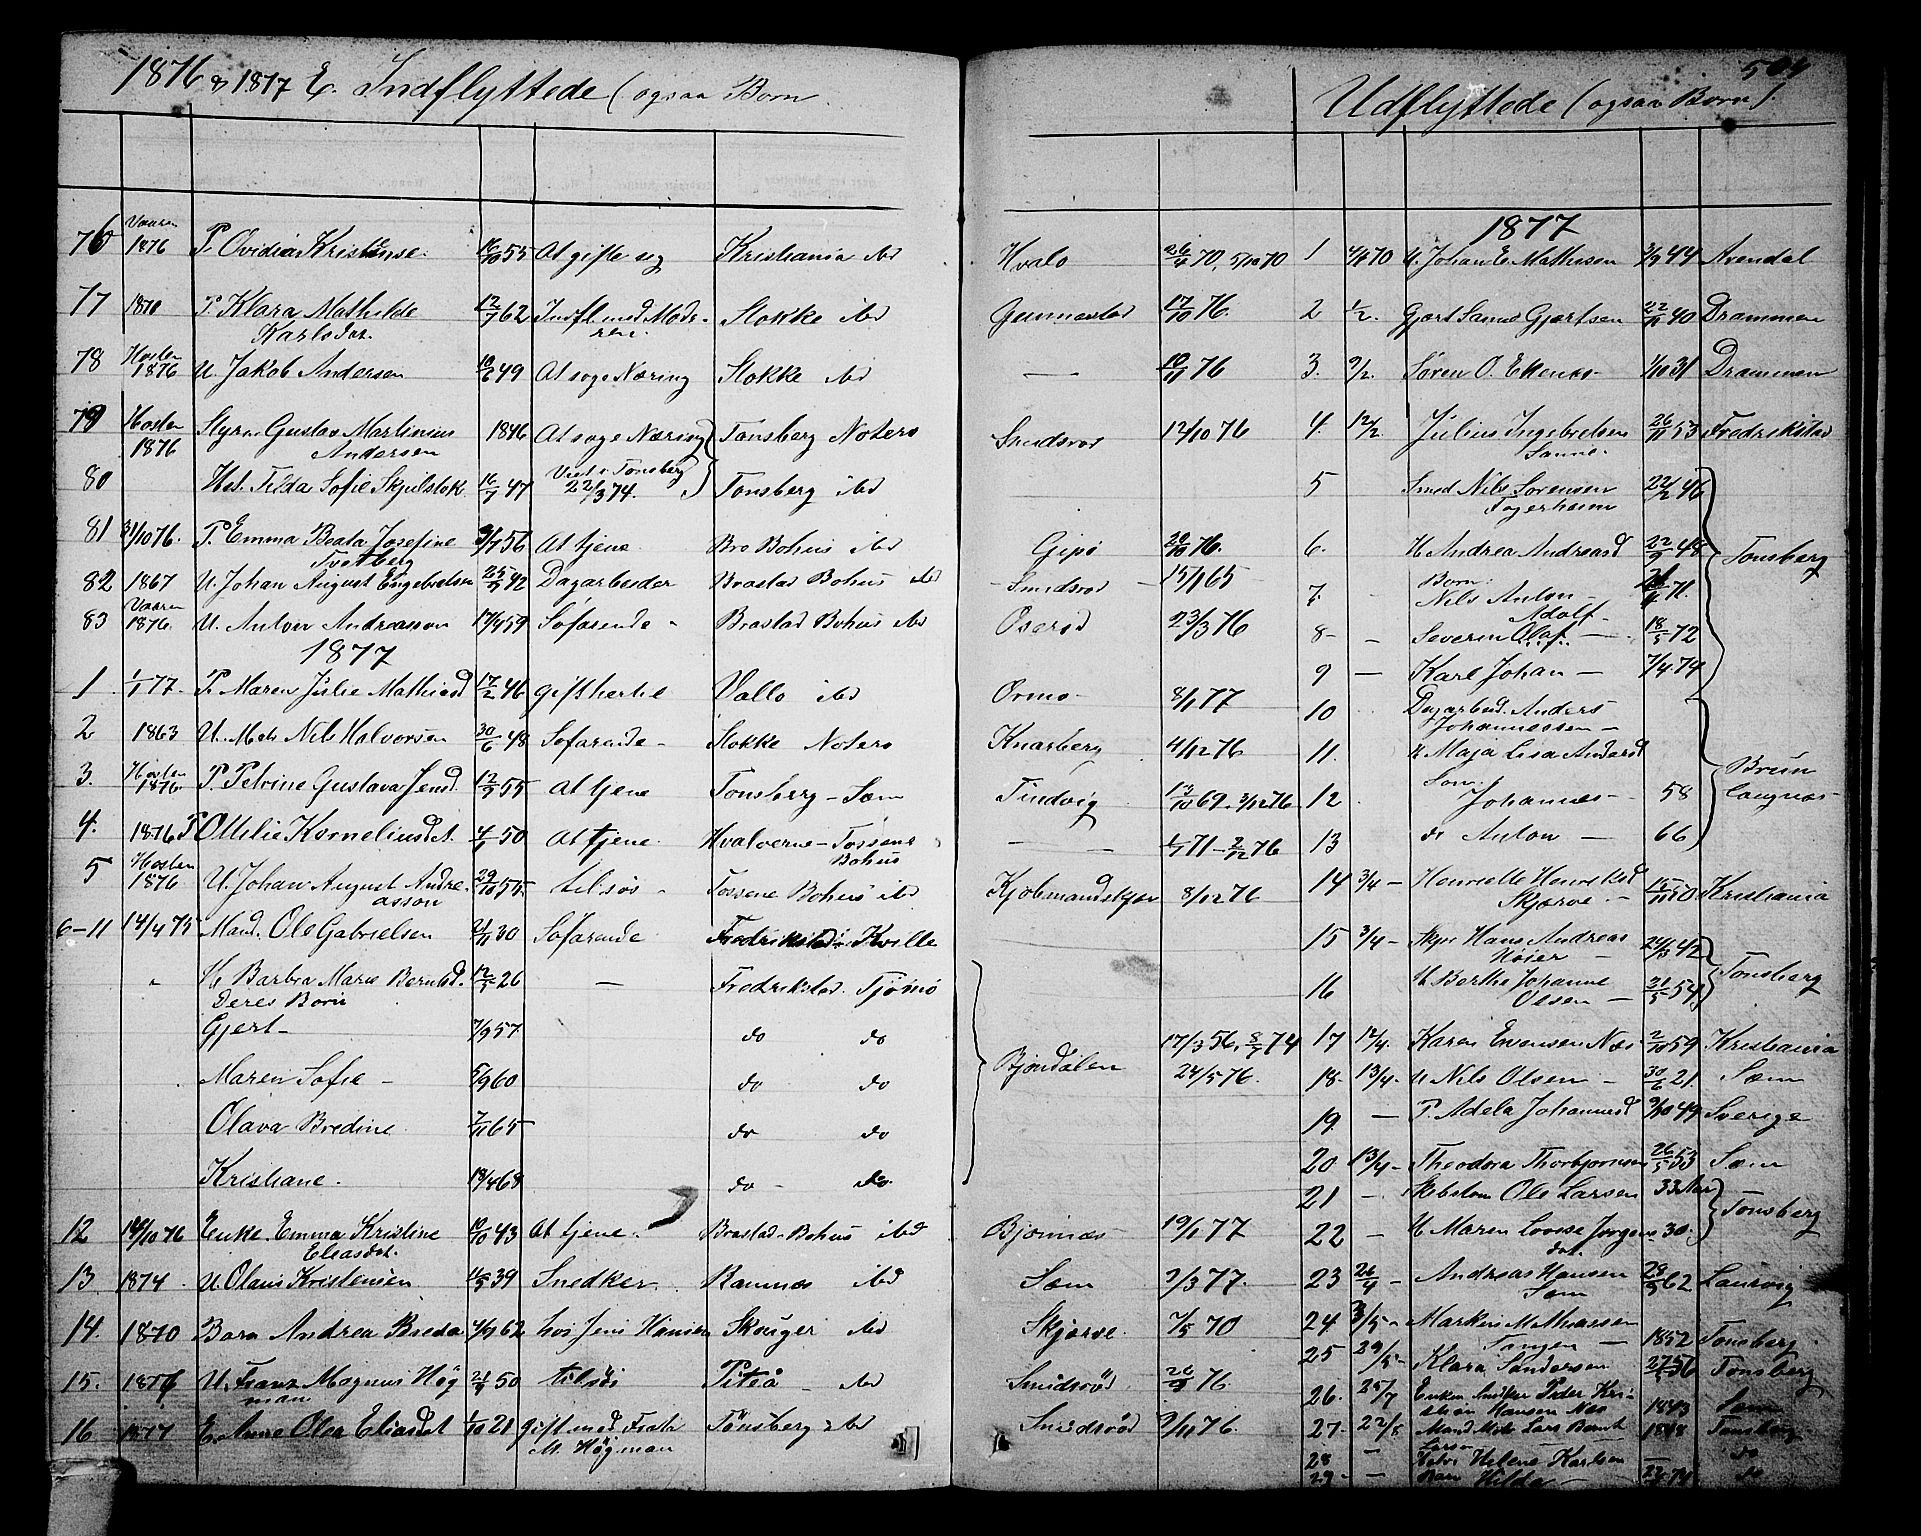 1876 & 1877 E. Indflyttede (ogsaa Børn
76 Vaaren 1876 P. Ovidia Kristense. 16/10 55 At gifte sig Kristiania ibd Hvalø 26/4 70, 5/10 70
77 1870 P. Klara Mathilde Karlsdat. 12/7 62 Indfl. med Mode- ren. Stokke ibd Gunnestad 17/10 76
78 Høsten 1876 U. Jakob Andersen 49 At søge Næring Stokke ibd — 10/11 76
79 Høsten 1876 Styrm Gustav Martinius Andersen 1846 At søge Næring Tønsberg Noterø Smidsrød 12/10 76
80 Hst. Tilda Sofie Skjelstok 16/7 47 Viet i Tønsberg 22/3 74. Tønsberg ibd
81 31/10 76. P. Emma Beata Josefine Tvetberg 56 At tjene Bro Bohus ibd Gipø 76.
82 1867 U. Johan August Engebretsen 42 Dagarbeider Brastad Bohus ibd Smidsrød 15/1 65
83 Vaaren 1876. U. Anton Andreasson 17/4 59 Søfarende Brastad Bohus ibd Oserød 23/3 76
1877
1 1/1 77. P. Maren Julie Mathiasd 17/2 46 gift hertil Vallø ibd Ormø 8/1 77
2 1863 U. Mats Nils Halvorsen 30/6 48 Søfarende Stokke Noterø Knarberg 4/12 76
3. Høsten 1876. P. Petrine Gustava Jensd 12/7 55 At tjene Tønsberg - Sem Tindvig 13/10 69. 3/12 76
4. 1876 P Ottilie Korneliusdt. 4/1 50 At tjene Hvaløerne - Tossene Bohus — 1/7 71 - 2/12 76
5 Høsten 1876 U. Johan August Andre- asson 29/10 55. tilsøs Tossene Bohus ibd Kjøbmandskjær 8/12 76
6-11 14/4 75 Mand. Ole Gabrielsen 21/11 30 Søfarende Fredrikstad - Kville
" H Barbra Marie Berntsd. 12/1 26 — Fredrikstad. Tjømø
Deres Børn
Gjert 7/9 57 do do Bjøndalen 17/3 56, 8/7 74
Maren Sofie 5/9 60 do do 24/5 76.
Olava Bredine 7/11 65 do do
Kristiane. 68 do do.
12 14/10 76 Enke. Emma Kristine Eliasdat. 10/10 43 At tjene. Brastad. Bohus ibd Bjørnnæs 19/1 77
13 1874. U. Olaus Kristensen 39 Snedker Ramnæs ibd Sæm 2/3 77.
14. 1870 Barn Andrea Breda 4/9 62 hos Jens Hansen Skouger ibd Skjørve. 7/5 70
15. 1876 U. Franz Magnus Høg man 21/4 50 tilsøs Piteå ibd Smidsrød 76
16 1877 E. Anne Olea Eliasdt 1/10 21 gift med Frants M. Høgman Tønsberg ibd Smidsrød 9/11 76.
504
Udflyttede (ogsaa Børn).
1877
1 4/1 70 U. Johan E. Mathisen 3/9 44 Arendal
2 1/2. Gjert Samuel Gjertsen 22/11 40 Drammen
3. 9/2. Søren O. Ekenes 1/10 31 Drammen
4. 12/2. Julius Ingebretsen Sanne. 26/11 53 Fredrikstad
5 Smed Nils Sørensen Fagerheim 22/2 46
6. H Andrea Andreasd 22/9 48 Tønsberg
7. Børn: Nils Anton Adolf 71.
8 — Severin Olaf — 18/5 72
9 — Karl Johan — 7/4 74
10 Dagarbeid. Anders Johannessen —
11. H. Maja Lisa Andersd
12 Søn Johannes — 58 Breiin Langnæs
13 do Anton — 66
14 3/4 — Henriette Henriksd Skjærve. — 50 Kristiania
15 3/4 — Skpr Hans Andreas Høier — 24/3 42
16 H Berthe Johanne Olsen — 21/5 54 Tønsberg
17 12/4. Karen Evensen Næs 2/10 59 Kristiania
18 13/4 — U Nils Olsen — 30/6 21 Sæm
19. — P. Adela Johannesd 9/10 49 Sverige
20 13/4 — Theodora Thorbjørnsen 26/5 53 Sæm
21 — Skibstøm Ole Larsen 33 Aar
22 — H Maren Lovise Jørgens dat. 30. Tønsberg
23 26/4 — Andreas Hansen Søm 62 Laurvig
24 3/5 Markus Mathiassen Tangen — 1852 Tønsberg.
25 29/5 Klara Sandersen 56 Tønsberg
26. 25/7 Enken Snedker Peder Kri- stian Hansen Næs 1843 Sæm
27. 22/8 Mand Mats Lars Bernt Larsen 1848 Tønsberg
28 — Kone Helene Karlsen — do
29 — Barn Hilda — 74 do